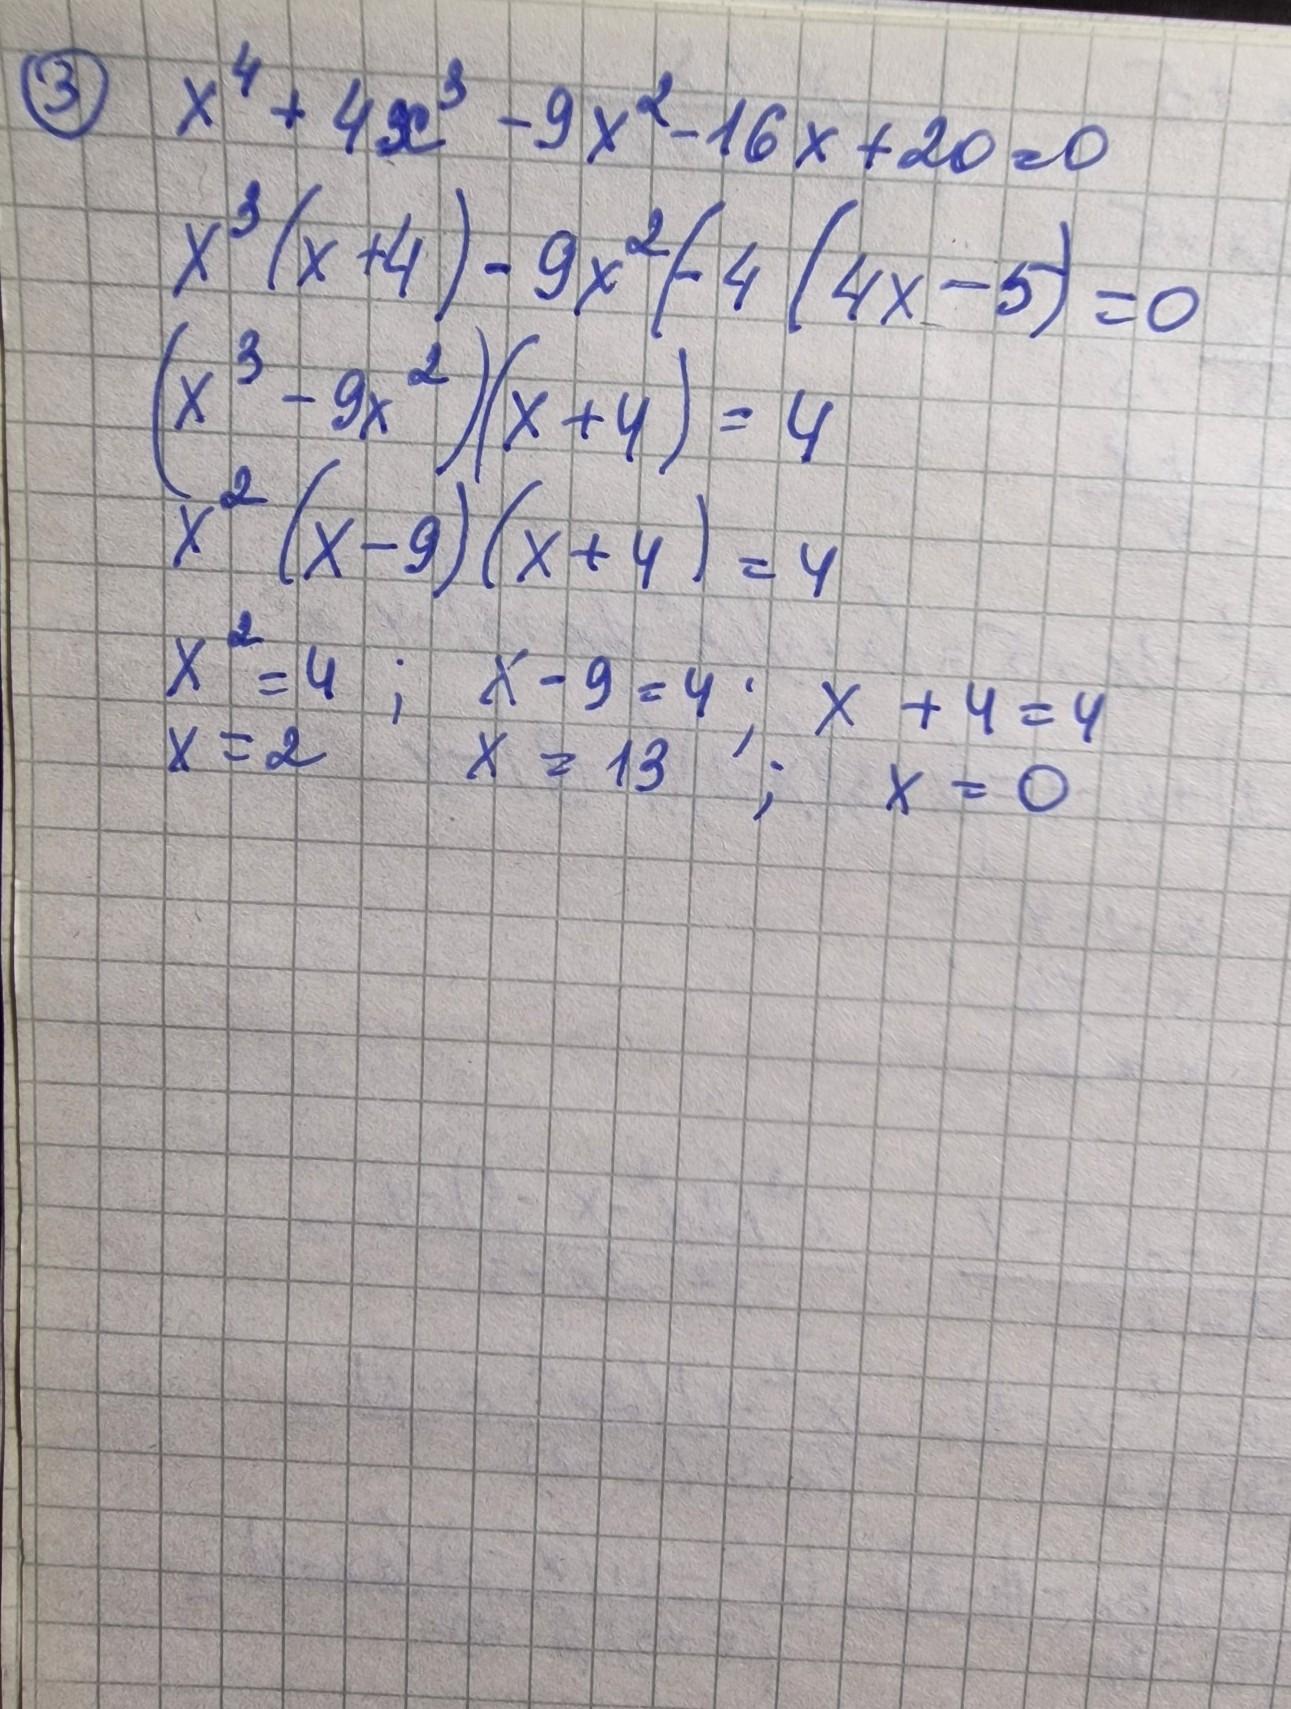 ③ x⁴ + 4x³ - 9x² - 16x + 20 = 0
x³(x+4) - 9x²(-4(4x-5) = 0
(x³ - 9x²)(x+4) = 4
x²(x-9)(x+4) = 4
x² = 4 ; x - 9 = 4 ; x + 4 = 4
x = 2 x = 13 ; x = 0